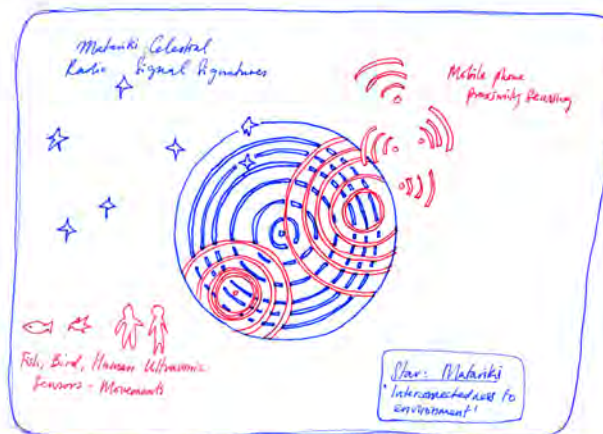 Matariki Celestial
Radio Signal Signatures
Mobile phone
proximity Sensing
Fish, Bird, Human Ultrasonic
Sensors - Movements
Star: Matariki
'Interconnectedness to
environment'